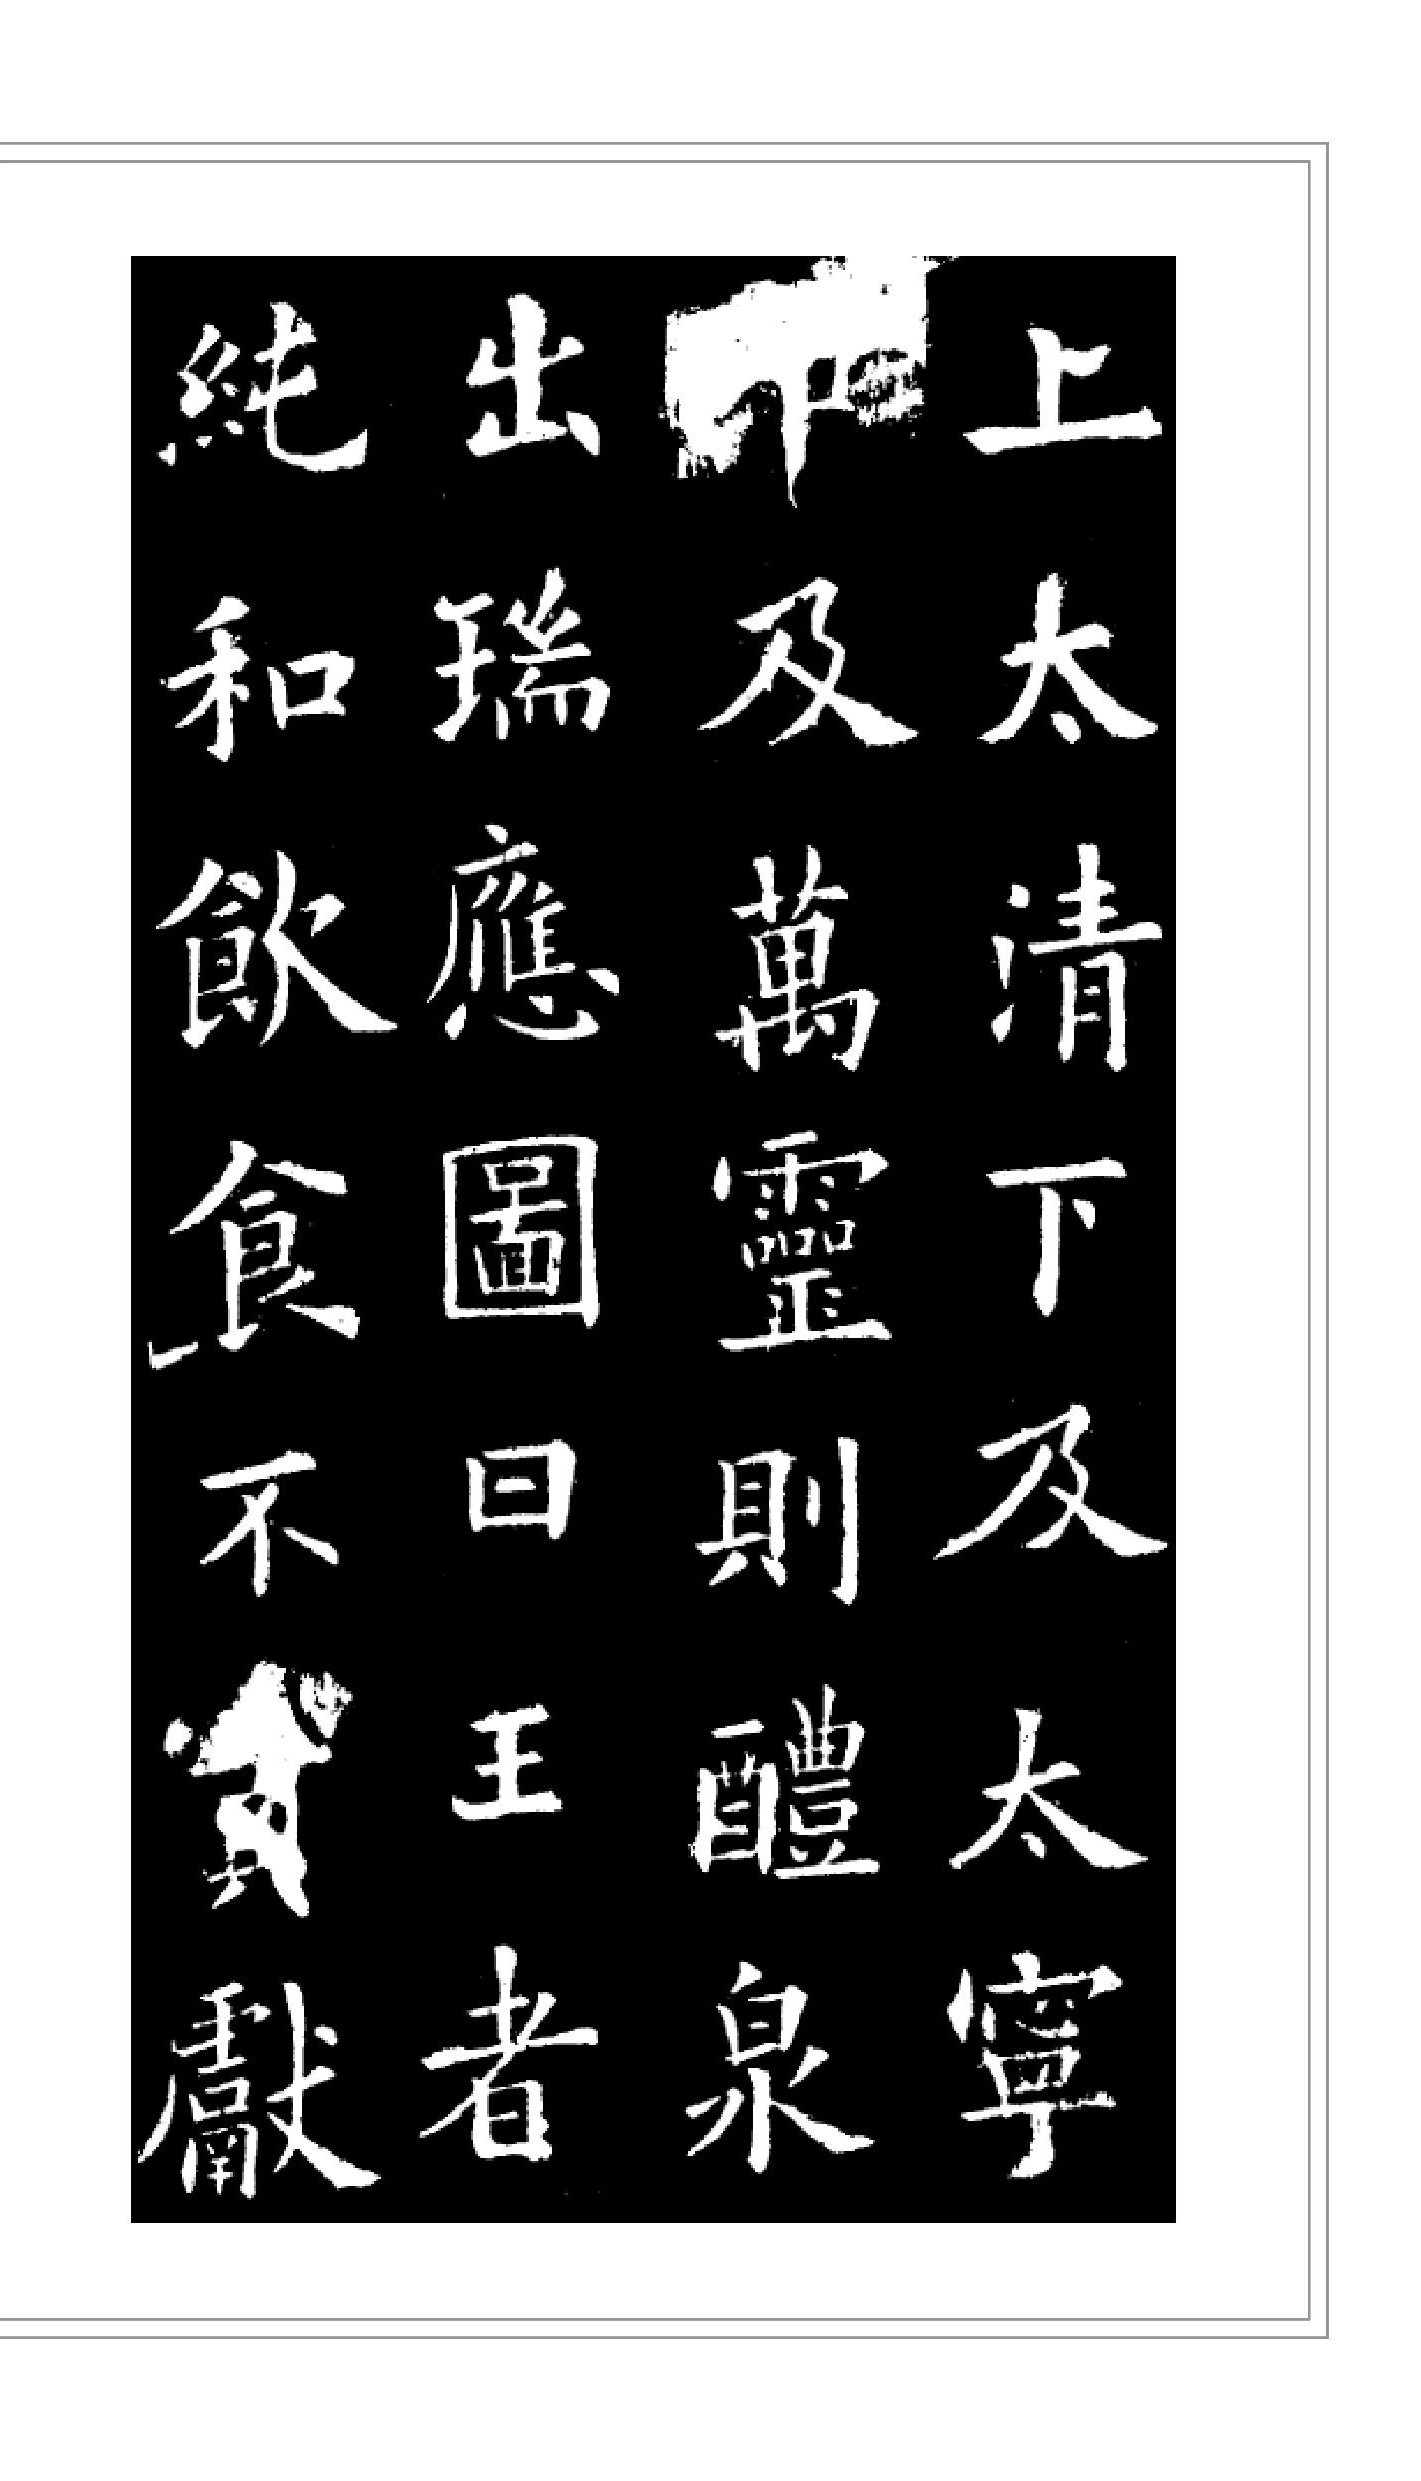 上太清下及太寧
及萬靈則醴泉
出瑞應圖曰王者
純和飲食不貢獻